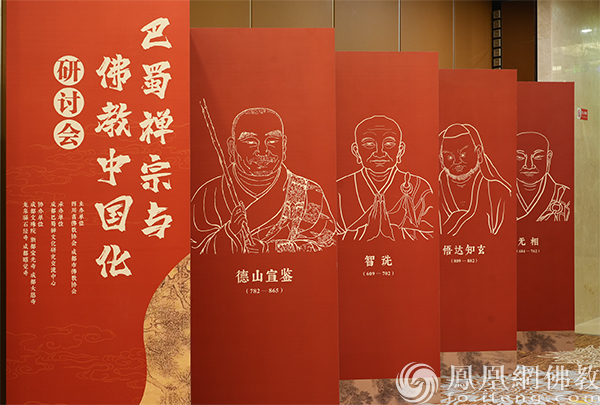 巴蜀禅宗与
佛教中国化
研讨会
主办单位
四川省佛教协会 成都市佛教协会
承办单位
成都巴蜀禅文化研究交流中心
协办单位
成都文殊院 新都宝光寺 成都大慈寺
龙泉驿石经寺 成都昭觉寺
德山宣鉴
(782—865)
智诜
(609—702)
悟达知玄
(809—882)
无相
(684—762)
鳳凰網佛教
fo.ifeng.com